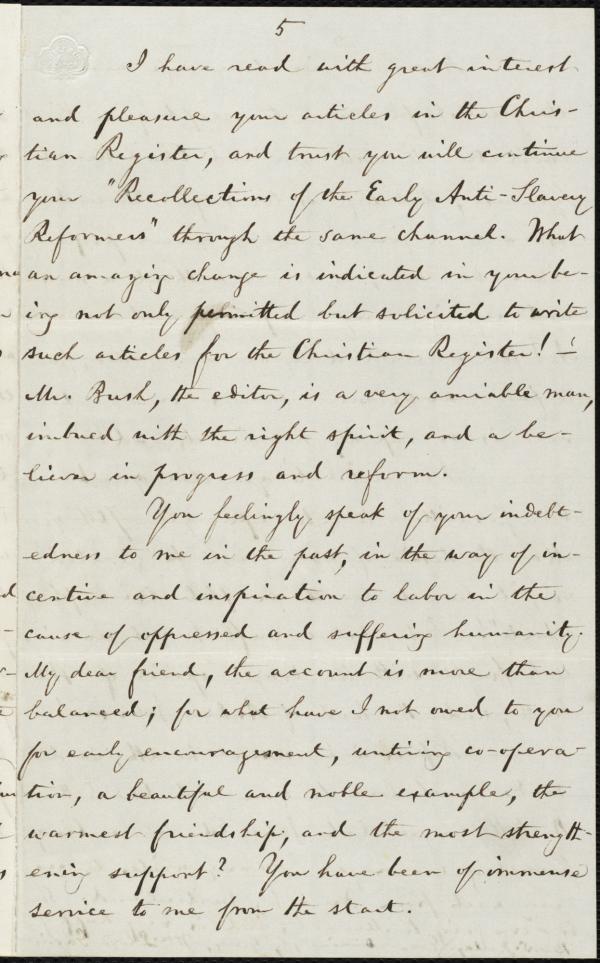 5
I have read with great interest
and pleasure your articles in the Chris-
tian Register, and trust you will continue
your "Recollections of the Early Anti-Slavery
Reformers" through the same channel. What
an amazing change is indicated in your be-
ing not only permitted but solicited to write
such articles for the Christian Register! —
Mr. Bush, the editor, is a very amiable man,
imbued with the right spirit, and a be-
liever in progress and reform.
You feelingly speak of your indebt-
edness to me in the past, in the way of in-
centive and inspiration to labor in the
cause of oppressed and suffering humanity.
My dear friend, the account is more than
balanced; for what have I not owed to you
for early encouragement, untiring co-opera-
tion, a beautiful and noble example, the
warmest friendship, and the most strength-
ening support? You have been of immense
service to me from the start.